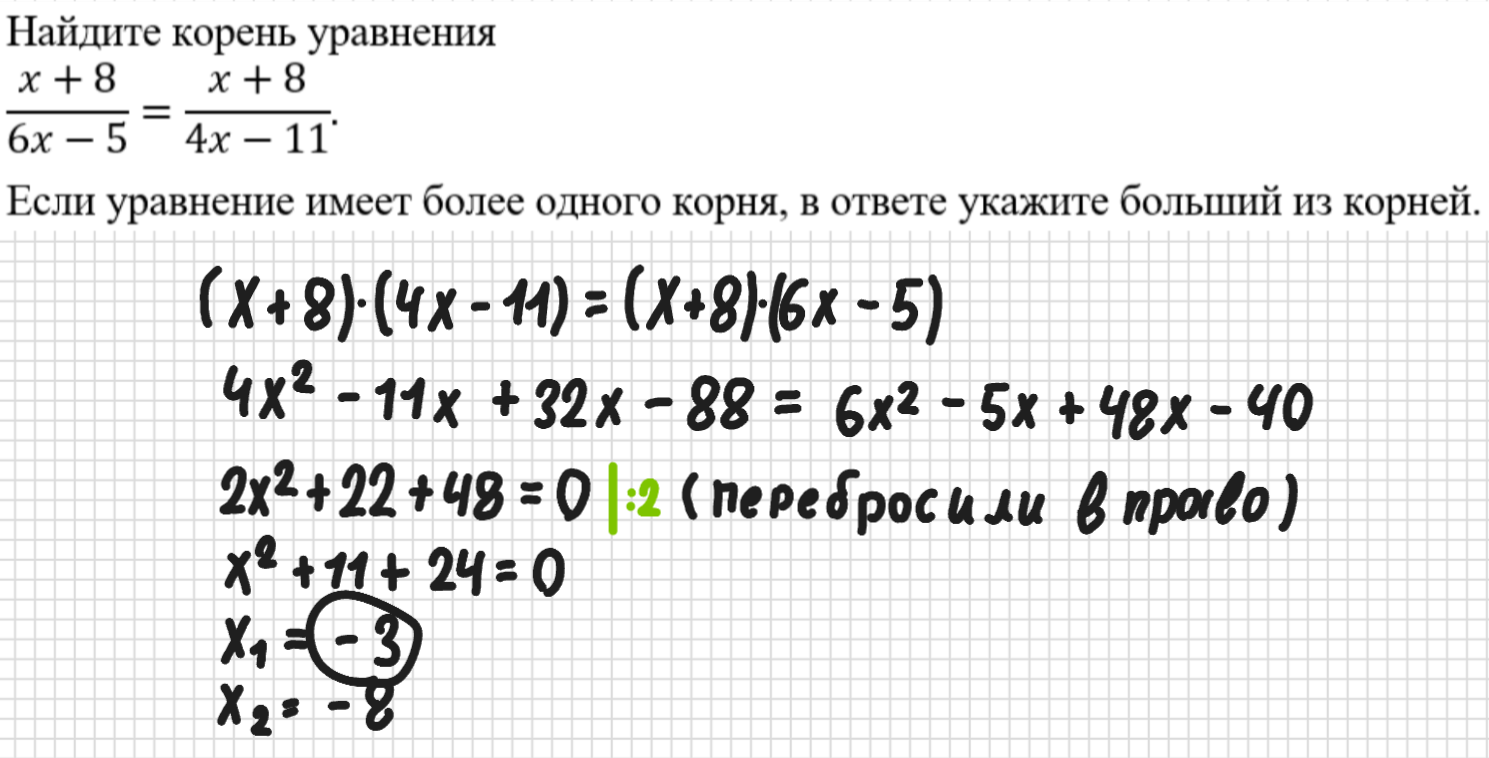 Найдите корень уравнения
x + 8 / 6x − 5 = x + 8 / 4x − 11.
Если уравнение имеет более одного корня, в ответе укажите больший из корней.
(x+8)·(4x-11)=(x+8)·(6x-5)
4x² -11x +32x -88 = 6x² -5x +48x -40
2x²+22+48=0 |:2 (перебросили в право)
x²+11+24=0
x₁ = -3
x₂ = -8